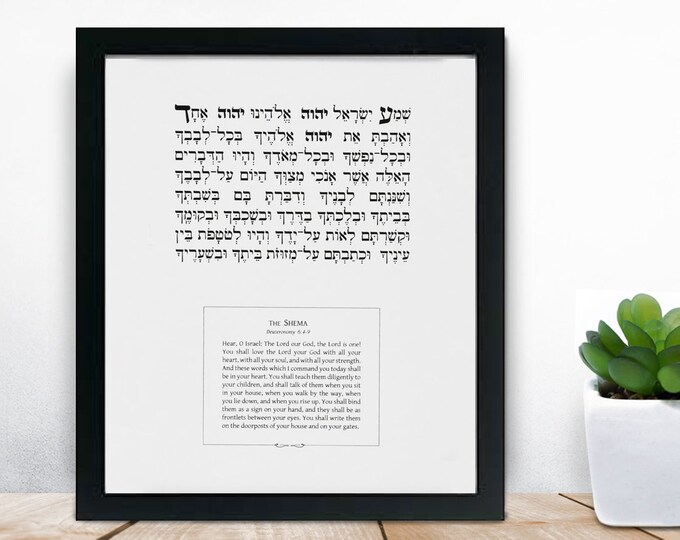 שְׁמַע יִשְׂרָאֵל יהוה אֱלֹהֵינוּ יהוה אֶחָד
וְאָהַבְתָּ אֵת יהוה אֱלֹהֶיךָ בְּכָל־לְבָבְךָ
וּבְכָל־נַפְשְׁךָ וּבְכָל־מְאֹדֶךָ וְהָיוּ הַדְּבָרִים
הָאֵלֶּה אֲשֶׁר אָנֹכִי מְצַוְּךָ הַיּוֹם עַל־לְבָבֶךָ
וְשִׁנַּנְתָּם לְבָנֶיךָ וְדִבַּרְתָּ בָּם בְּשִׁבְתְּךָ
בְּבֵיתֶךָ וּבְלֶכְתְּךָ בַדֶּרֶךְ וּבְשָׁכְבְּךָ וּבְקוּמֶךָ
וּקְשַׁרְתָּם לְאוֹת עַל־יָדֶךָ וְהָיוּ לְטֹטָפֹת בֵּין
עֵינֶיךָ וּכְתַבְתָּם עַל־מְזוּזֹת בֵּיתֶךָ וּבִשְׁעָרֶיךָ
THE SHEMA
Deuteronomy 6:4-9
Hear, O Israel: The Lord our God, the Lord is one!
You shall love the Lord your God with all your
heart, with all your soul, and with all your strength.
And these words which I command you today shall
be in your heart. You shall teach them diligently to
your children, and shall talk of them when you sit
in your house, when you walk by the way, when
you lie down, and when you rise up. You shall bind
them as a sign on your hand, and they shall be as
frontlets between your eyes. You shall write them
on the doorposts of your house and on your gates.